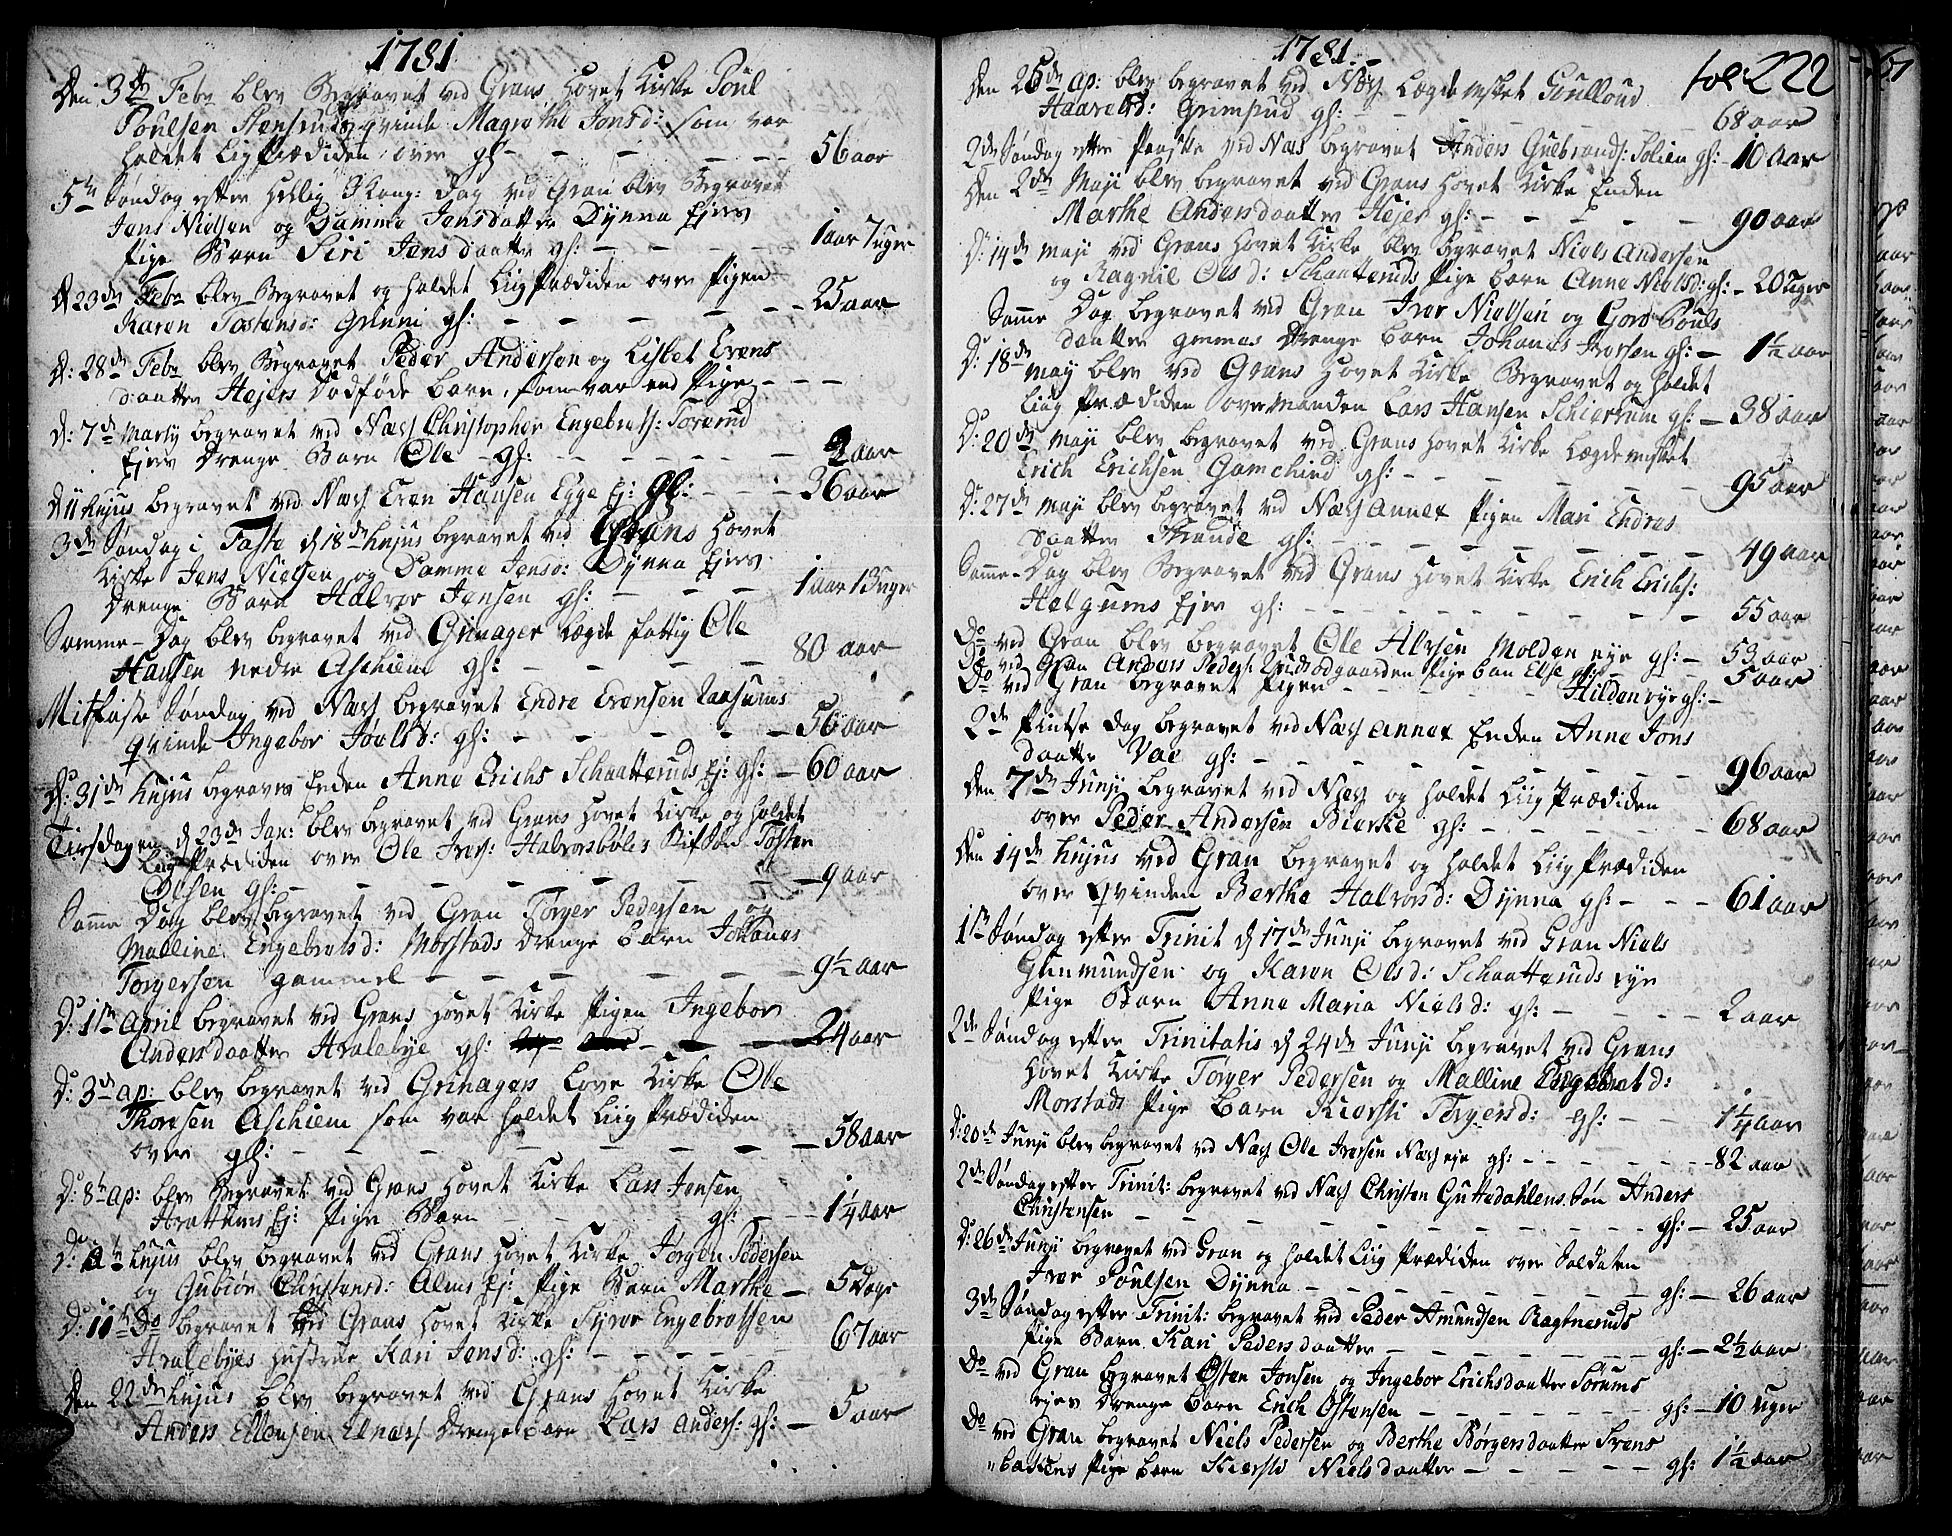 1781
Den 3de Febr blev Begravet ved Grans Hovet Kirke Poul
Poulsen Hensruds qvinde Magrethe Jonsd: som var
holdet LigPrædiken over gl: - - - 56 aar
5te Søndag efter Hellig 3 Kong: Dag ved Gran blev Begravet
Jens Nielsen og Damme Jensdatter Dynna Ejers
Pige Barn Siri Jensdaatter gl: - - - 1 aar 7 uger
D 23de Febr blev Begravet og holdet LiigPrædiken over Pigen
Karen Tostensd: Grinni gl: - - - 25 aar
D: 28de Febr blev Begravet Peder Andersen og Lisbet Evens
daatter Hejers Dødføde barn, som var end Pige - - -
D: 7de Marty begravet ved Næss Christopher Engebrets: Torerud
Ejers Drenge Barn Ole gl: - - - 2 aar
D 11 hujus begravet ved Næss Even Hansen Egge Ej: gl: - - - 36 aar
3de Søndag i Faste D 18de hujus begravet ved Grans Hovet
Kirke Jens Nielsen og Damme Jensd: Dynna Ejers
Drenge Barn Halvor Jensen gl: - - - 1 aar 13 uger
Samme Dag blev begravet ved Grinager Lægds fattig Ole
Hansen nedre Aschiem gl: - - - 80 aar
Mitfaste Søndag ved Næss begravet Endre Evensen Raasums
qvinde Ingebor Joelsd: gl: - - - 56 aar
D: 31de hujus begraves Enden Anne Erichs Schaatteruds Ej: gl: - 60 aar
Tirsdagen D 23de Jan: blev begravet ved Grans Hovet Kirke og holdet
Liig Prædiken over Ole Ivers: Halvorsbøles Stifsøn Tosten
Olsen gl: - - - 9 aar
Samme Dag blev begravet ved Gran Torger Pedersen og
Malline Engebretsd: Morstads Drenge barn Johanes
Torgersen gammel - - - 9½ aar
D: 1ste April begravet ved Grans Hovet Kirke Pigen Ingebor
Andersdaatter Hvalebye gl: - - - 24 aar
D: 3de ap: blev begravet ved Grinagers Love Kirke Ole
Thoresen Aschiem som var holdet Liig Prædiken
over gl: - - - 58 aar
D: 8de ap: blev Begravet ved Grans Hovet Kirke Lars Jensen
Hvattums Ej: Pige Barn - - - gl: - - - 1¼ aar
hujus blev begravet ved Grans Hovet Kirke Jørgen Pedersen
og Gubiør Christensd: Alms Ej: Pige Barn Marthe - 5 Dage
D: 11te Do begravet ved Grans Hovet Kirke Syver Engebretsen
Hvalebyes Hustrue Kari Jensd: gl: - - - 67 aar
Den 22de hujus blev begravet ved Grans Hovet Kirke
Anders Ellensen Elnæs Drengebarn Lars Anders: gl: - 5 aar
1781. fol: 222
Den 26de ap: blev begravet ved Næss Lægdemsket Guulloug
Haarelsd: Grimsrud gl: - - - 68 aar
2den Søndag efter Paaske ved Næs begravet Anders Gulbrands: Solien gl: - 10 aar
Den 2den Maji blev begravet ved Grans Hovet Kirke Enden
Marthe Andersdaatter Hejer gl: - - - 90 aar
D: 14de maji ved Grans Hovet Kirke blev begravet Niels Andersen
og Ragnil Olsd: Schaatteruds Pige Barn Anne Nielsd: gl: - 20 uger
Samme Dag begravet ved Gran Iver Nielsen og Goro Pouls
datter gmmas Drenge Barn Johanes Iversen gl: - 1½ aar
D: 18de may blev ved Grans Hovet Kirke Begravet og holdet
Liig Prædiken over manden Lars Hansen Schierrum gl: - 38 aar
D: 20de maji blev begravet ved Grans Hovet Kirke Lægdemsket
Erich Erichsen Gamchind gl: - - - 95 aar
D: 27de maji blev begravet ved Næss Annex Pigen Mari Endres
daatter Strande gl: - - - 49 aar
Samme Dag blev Begravet ved Grans Hovet Kirke Erich Erichs:
Helgums Ejer gl: - - - 55 aar
Do ved Gran blev begravet Ole Alvsen Molden eye gl: - 53 aar
Do ved Gran Anders Peders: Pige ban Else gl: - 5 aar
Do ved Gran begravet Pigen - - - Hilden eye gl: -
2de Pintse Dag begravet ved Næss Annex Enden Anne Jons
daatter Vae gl: - - - 96 aar
Den 7de Junji begravet ved Næss og holdet Liig Prædiken
over Peder Andersen Bierke gl: - - - 68 aar
Den 14de hujus ved Gran begravet og holdet Liig Prædiken
over qvinden Berthe Halvorsd: Dynna gl: - - - 61 aar
1ste Søndag efter Trinit D 17de Junji begravet ved Gran Niels
Gunmundsen og Karen Olsd: Schaatteruds eye
Pige Barn Anne Maria Nielsd: gl: - - - 2 aar
2de Søndag efter Trinitatis D 24de Junji begravet ved Grans
Hovet Kirke Torger Pedersen og Malline Engebretd:
Morstads Pige Barn Kiersti Torgersd: gl: - - 1¼ aar
D: 20de Junji blev begravet ved Næss Ole Iversen Næss eje gl: - - - 82 aar
2de Søndag efter Trinit: begravet ved Næss Christen Guttedahlens Søn Anders
Christensen - - - gl: - 25 aar
D: 26de Junji begravet ved Gran og holdet Liig Prædiken over Soldaten
Iver Poulsen Dynna - - - gl: - 26 aar
3de Søndag efter Trinit: begravet ved Peder Amundsen Ragtneruds
Pige Barn Kari Pedersdaatter - - - gl: - 2½ aar
Do ved Gran begravet Østen Jonsen og Ingebor Erichsdaatter Sørums
ejes Drenge barn Erich Østensen - - - gl: - 10 uger
Do ved Gran begravet Niels Pedersen og Berthe Børgersdaatter Svens
backens Pige Barn Kiersti Nielsdaatter - - - gl: 1½ aar